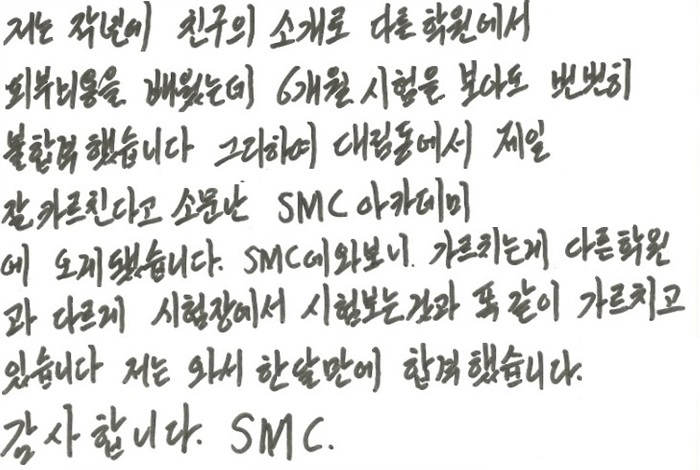 저는 작년에 친구의 소개로 다른 학원에서
피부미용을 배웠는데 6개월 시험을 보아도 번번히
불합격 했습니다 그리하여 대림동에서 제일
잘 카르친다고 소문난 SMC 아카데미
에 오게 됐습니다. SMC에 와보니. 가르치는게 다른학원
과 다르게 시험장에서 시험보는것과 똑 같이 가르치고
있습니다 저는 와서 한달만에 합격 했습니다.
감사합니다. SMC.